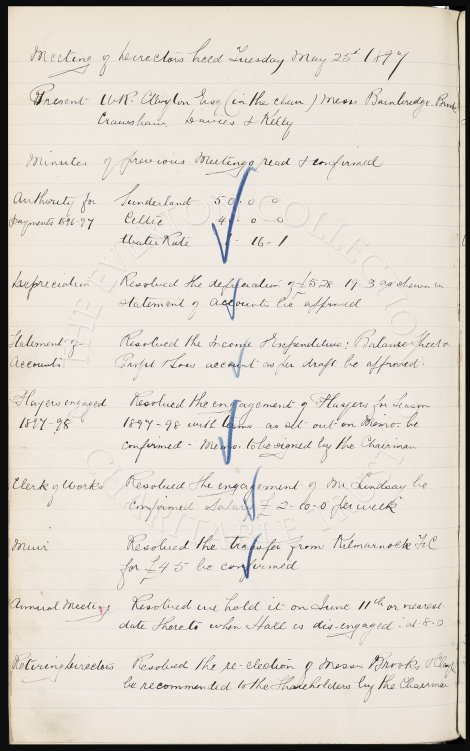 Meeting of Directors held Tuesday May 25th 1897
Present - W.R. Clayton Esq (in the chair) Messrs Bainbridge. Brooks
Crawshaw Davies & Kelly
Minutes of previous Meetings read & confirmed
Authority for Sunderland 50. 0 0
payments 1896-97 Celtic 4 . 0 0
Water Rate 16 - 1
Depreciation Resolved the depreciation of £528. 19. 3 as shewn in
statement of Accounts be approved
Statement of Resolved the Income & Expenditure; Balance Sheet &
Accounts Profit & Loss account as per draft be approved
Players engaged Resolved the engagement of Players for Season
1897-98 1897-98 with terms as set out on Memo. be
confirmed - Memo. to be signed by the Chairman
Clerk of Works Resolved the engagement of Mr Lindsay be
confirmed Salary £2-10-0 per week
Muir Resolved the transfer from Kilmarnock F.C
for £45 be confirmed
Annual Meeting Resolved we hold it on June 11th or nearest
date thereto when Hall is dis-engaged: at 8-0
Retiring Directors Resolved the re-election of Messrs Brooks, & Clayton
be recommended to the Shareholders by the Chairman
THE EVERTON COLLECTION
CHARITABLE TRUST